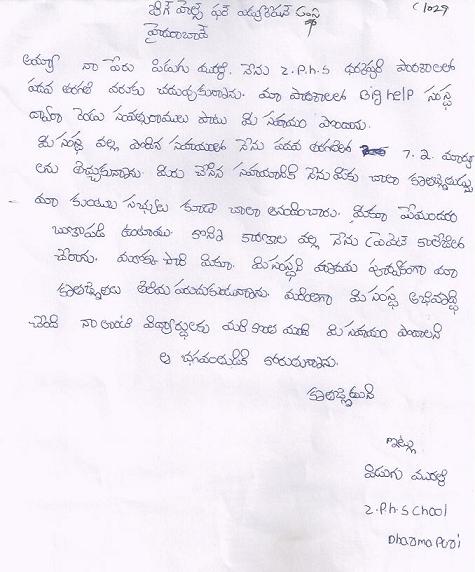 బిగ్ హెల్ప్ ఫర్ ఎడ్యుకేషన్ సంస్థ
C1029
హైదరాబాద్
అయ్యా నా పేరు పిడుగు మురళి. నేను Z.P.H.S ధర్మపురి పాఠశాలలో
పదవ తరగతి వరుకు చదువుకున్నాను. మా పాఠశాలలో Big help సంస్థ
ద్వారా రెండు సంవత్సరాములు పాటు మీ సహాయం పొందాను.
మీ సంస్థ వల్ల పొందిన సహాయంతో నేను పదవ తరగతిలో 7.2. మార్కు
లను తెచ్చుకున్నాను. మీరు చేసిన సహాయానికి నేను మీకు చాలా కృతజ్ఞుడున్ను
మా కుటుంబ సభ్యులు కూడా చాలా ఆనందించారు. మీకూ మేమందరం
ఋణపడి ఉంటాము. కొన్ని కారణాల వల్ల నేను ప్రైవేట్ కాలేజీలో
చేరాను. మరొక్క సారి మీకూ. మీ సంస్థకి హృదయ పూర్వకంగా మా
కృతజ్ఞతలు తెలియ పరుచుకుంటున్నాను. మరింతగా మీ సంస్థ అభివృద్ధి
చెంది నా లాంటి విద్యార్థులకు మరి కొంత మంది మీ సహాయం పొందాలని
ఆ భగవంతుడికి కోరుకున్నాను.
కృతజ్ఞతుడిని
ఇట్లు
పిడుగు మురళి
Z.P.h.SChool
DharmaPuri